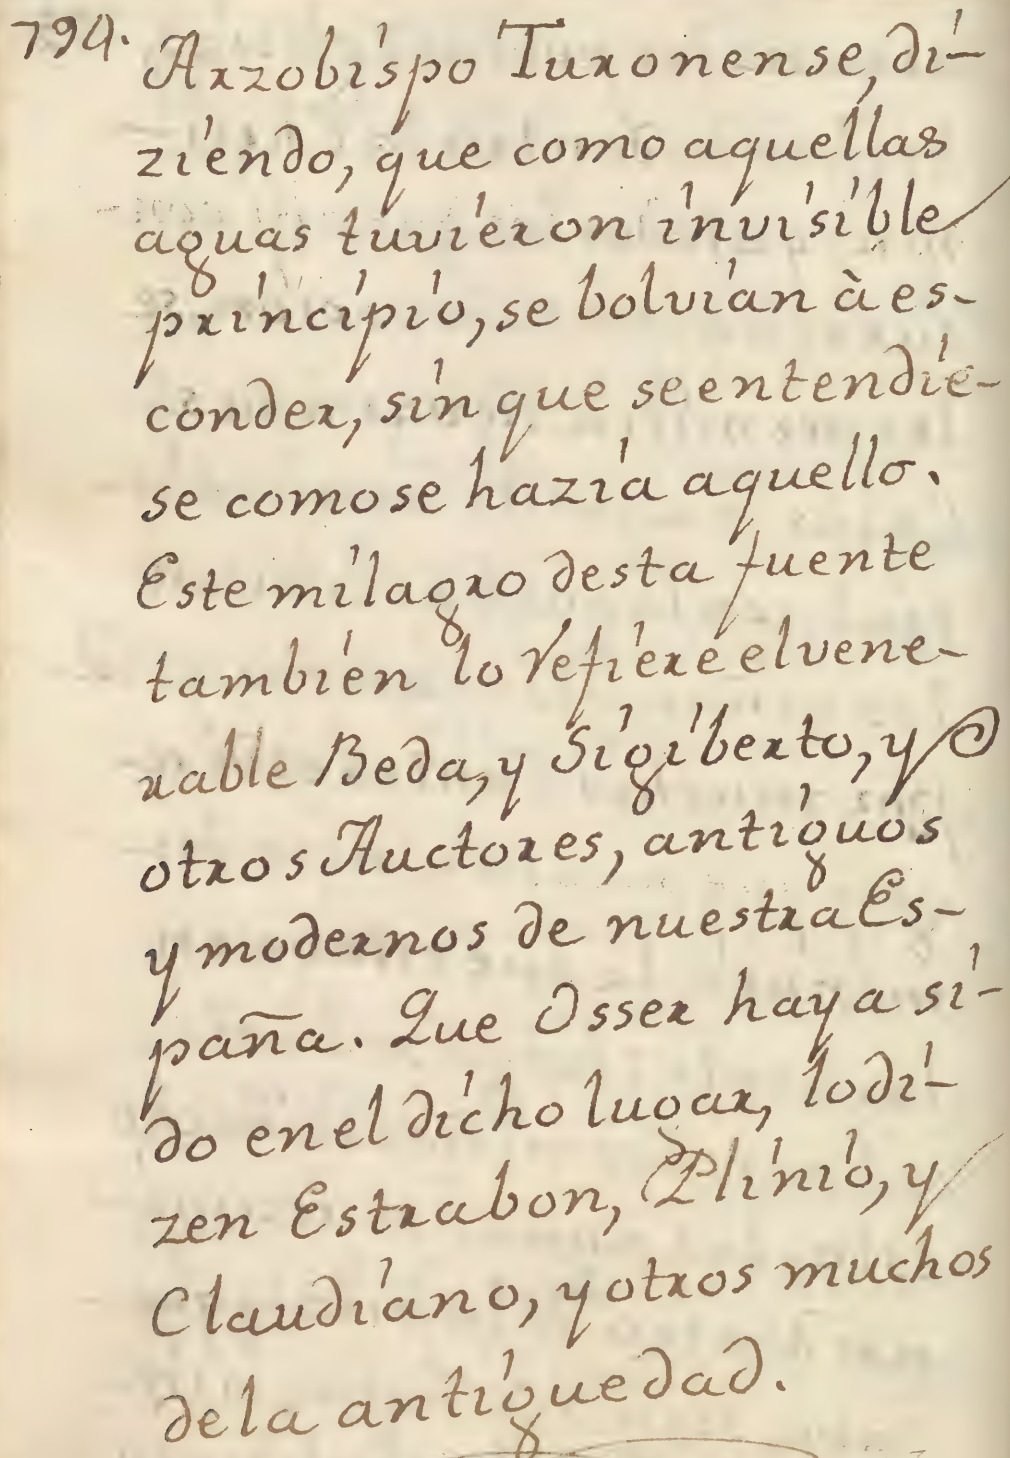 794. Arzobispo Turonense, di-
ziendo, que como aquellas
aguas tuvieron invisible
principio, se bolvian à es-
conder, sin que se entendie-
se como se hazia aquello.
Este milagro desta fuente
tambien lo refiere el vene-
rable Beda, y Sigiberto, y
otros Auctores, antiguos
y modernos de nuestra Es-
paña. Que Osser haya si-
do en el dicho lugar, lo di-
zen Estrabon, Plinio, y
Claudiano, y otros muchos
de la antiguedad.